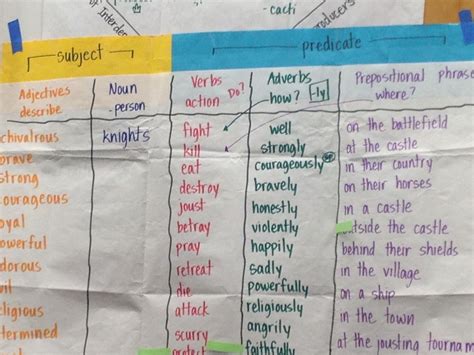 of Interde
- cacti
producers
subject predicate
Adjectives describe Noun - person Verbs action Do? Adverbs how? -ly Prepositional phrase where?
chivalrous knights fight well on the battlefield
brave kill strongly at the castle
strong eat courageously in their country
ourageous destroy bravely on their horses
oyal joust honestly in a castle
owerful betray violently outside the castle
dorous pray happily behind their shields
vil retreat sadly in the village
eligious die powerfully on a ship
termined attack religiously in the town
scurry angrily at the jousting tourname
protect faithfully